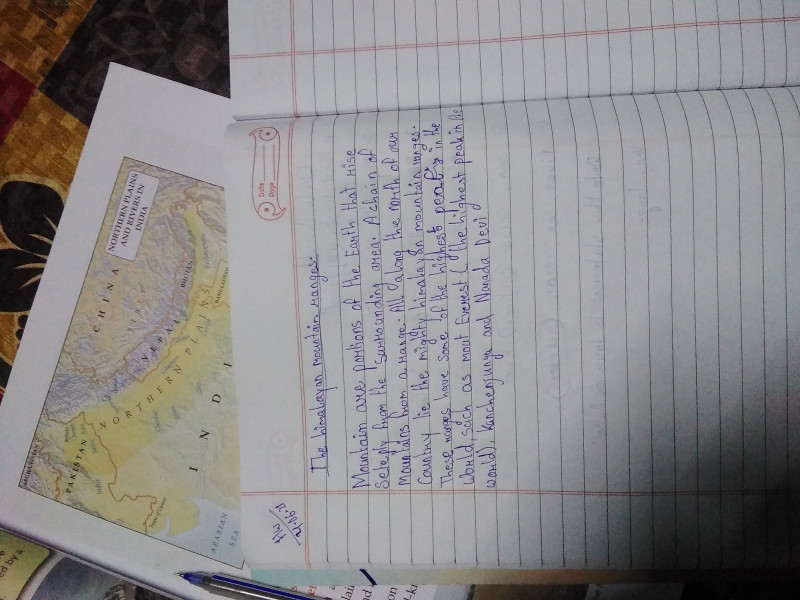 Date
Page
The himalayan mountain ranges:
Mountain are portions of the Earth that rise
from the surrounding area. A chain of
mountains from a range. All along the north of our
Country lie the mighty himalayan mountain ranges.
These ranges have some of the highest in the
World, such as mout Everest ( the highest peak in the
world), Kanchenjunga and Nanada Devi
NORTHERN PLAINS
AND RIVERS IN
INDIA
CHINA
TIBET
NEPAL
BHUTAN
BANGLADESH
NORTHERN PLAIN
PAKISTAN
AFGHANISTAN
INDI
ARABIAN
SEA